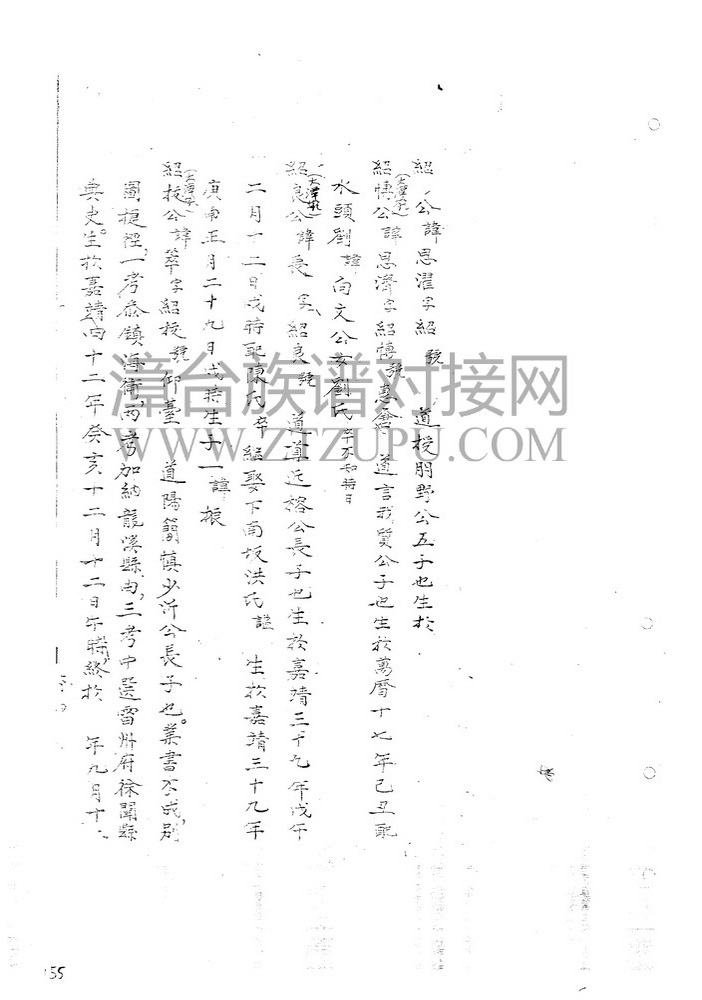 紹 公諱恩濯字紹 號 道授朋野公五子也生於
紹博公諱恩濟字紹博號惠 道言我質公子也生於萬曆十七年己丑配
水頭劉 諡 向文公女劉氏卒不知時日
紹良公諱長 字紹良號 道 近榕公長子也生於嘉靖三十九年戊午
二月十二日戌時配陳氏卒 繼娶下南坂洪氏 諡 生於嘉靖三十九年
庚申正月二十九日戌時生子一諱振
紹技公諱萃字紹技號仰臺 道陽 慎少沂公長子也。業書不成，別
圖捷徑，一考泰鎮海衛，兩考加納龍溪縣 ，三考中選雷州府徐聞縣
典史。生於嘉靖四十二年癸亥十二月十二日午時，終於 年九月十
漳台族谱对接网
WWW.ZTZUPU.COM
155